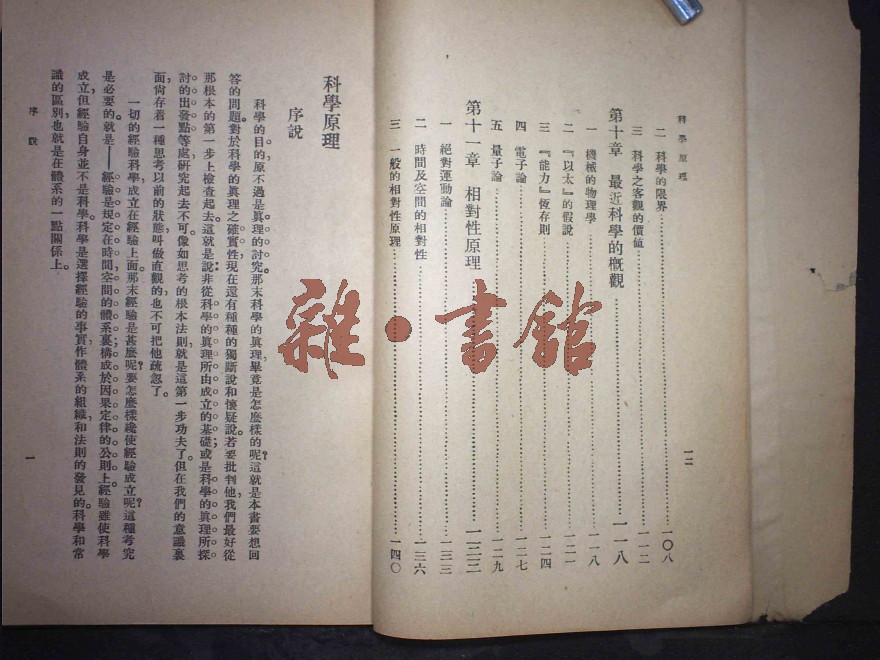 科學原理
二 科學的限界……一〇八
三 科學之客觀的價值……一一二
第十章 最近科學的概觀……一一八
一 機械的物理學……一一八
二 『以太』的假說……一二一
三 『能力』恆存則……一二四
四 電子論……一二七
五 量子論……一二九
第十一章 相對性原理……一三三
一 絕對運動論……一三三
二 時間及空間的相對性……一三六
三 一般的相對性原理……一四〇
一二
科學原理
序說
科學的目的，原不過是眞理的討究。那末科學的眞理，畢竟是怎麼樣的呢？這就是本書要想回
答的問題。對於科學的眞理之確實性，現在還有種種的獨斷說和懷疑說。若要批判他，我們最好從
那根本的第一步上檢查起去。這就是說：非從科學的眞理所由成立的基礎；或是科學的眞理所探
討的出發點等處研究起去不可。像如思考的根本法則，就是這第一步功夫了。但在我們的意識裏
面，尙存着一種思考以前的狀態，叫做直觀的，也不可把他疏忽了。
一切的經驗科學，成立在經驗上面。那末經驗是甚麼呢？要怎麼樣纔使經驗成立呢？這種考究
是必要的。就是——經驗是規定在時間空間的體系裏，構成於因果定律的公則上。經驗雖使科學
成立，但經驗自身並不是科學。科學是選擇經驗的事實，作體系的組織，和法則的發見的。科學和常
識的區別，也就是在體系的一點關係上。
序說
一
雜·書館